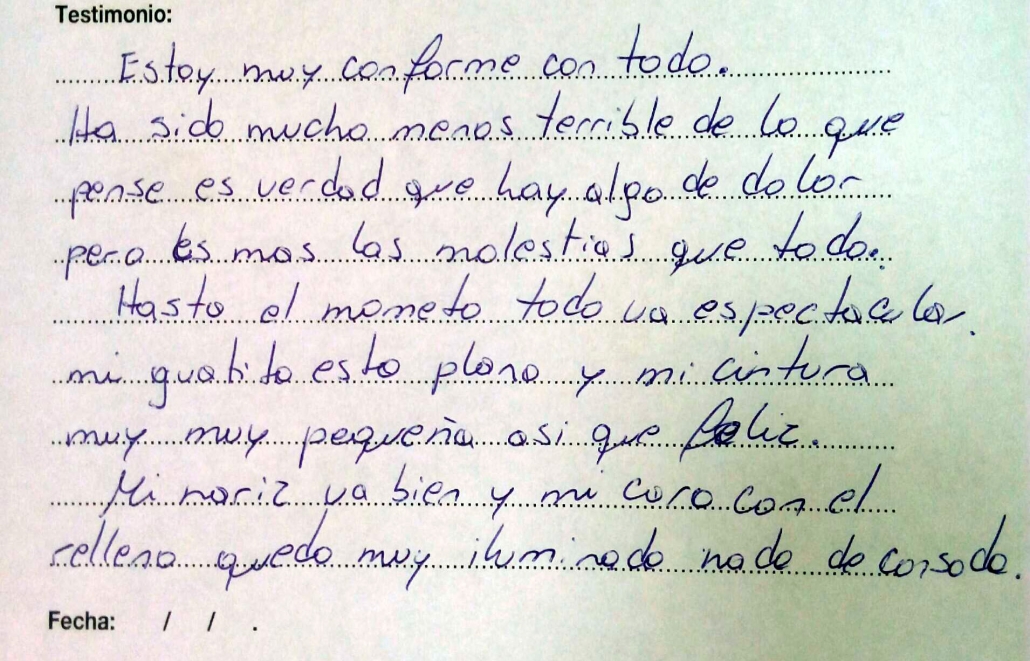 Testimonio:
Estoy muy conforme con todo.
Ha sido mucho menos terrible de lo que
pense es verdad que hay algo de dolor
pero es mas las molestias que todo.
Hasta el mometo todo va espectacular.
mi guatita esta plana y mi cintura
muy muy pequeña asi que feliz.
Mi nariz va bien y mi cara con el
relleno quedo muy iluminada nada de cansada.
Fecha: / / .